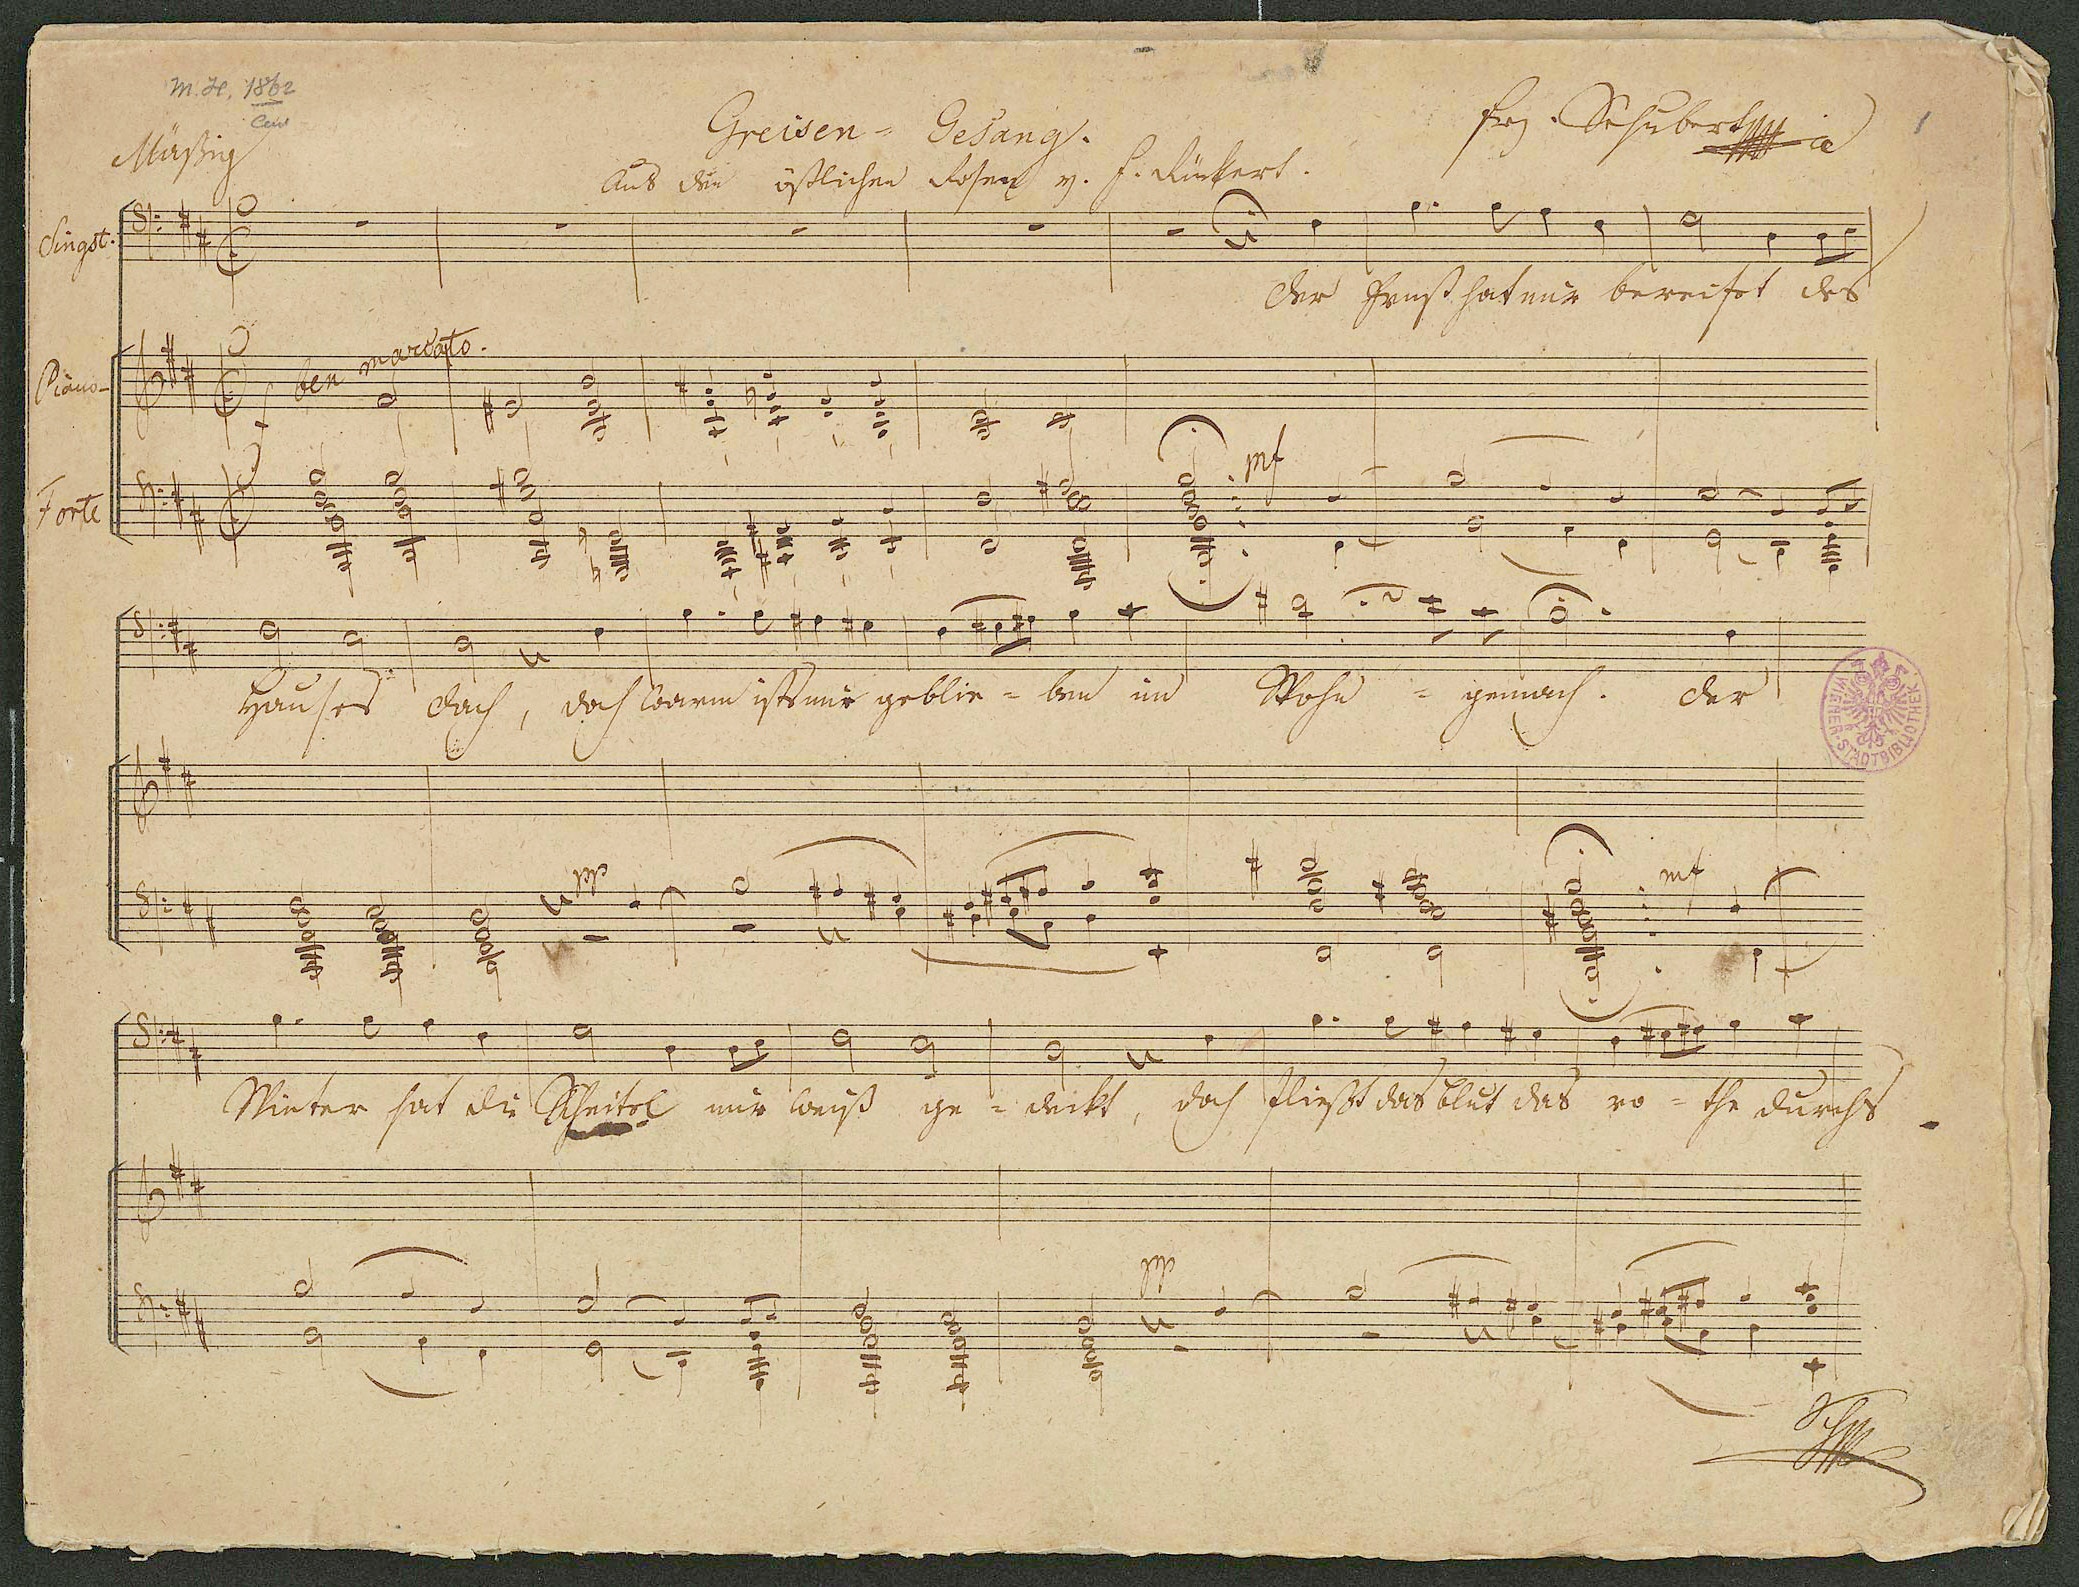 M.H. 1862
Mäßig
Greisen = Gesang.
Aus den östlichen Rosen v. F. Rückert.
Frz. Schubert
1
Singst.
der Frost hat mir bereifet des
Piano-
ben marcato.
f
Forte
mf
Hauses Dach, doch warm ists mir geblie = ben im Wohn = gemach. der
WIENER STADTBIBLIOTHEK
pp
mf
Winter hat die Scheitel mir weiß ge = deckt, doch fließt das Blut das ro = the durchs
pp